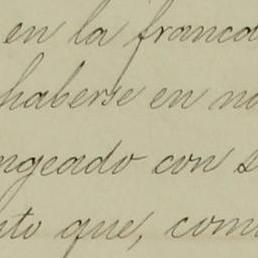 en la franca
haberse en no
ngeado con s
nto que, com